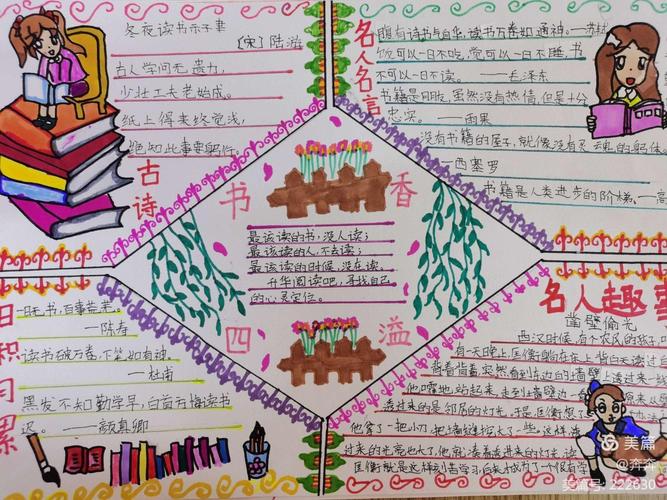 冬夜读书示子聿
〔宋〕陆游
古人学问无遗力,
少壮工夫老始成。
纸上得来终觉浅,
绝知此事要躬行。
古诗
名人名言
腹有诗书气自华,读书万卷始通神。—苏轼
饭可以一日不吃,觉可以一日不睡,书
不可以一日不读。——毛泽东
书籍是朋友,虽然没有热情,但是十分
忠实。——雨果
没有书籍的屋子,就像没有灵魂的躯体。
——西塞罗
书籍是人类进步的阶梯。——高
书香四溢
最该读的书,没人读;
最该读的人,不去读;
最该读的时候,没在读。
升华阅读吧,寻找自己
的心灵定位。
日积月累
一日无书,百事荒芜。
——陈寿
读书破万卷,下笔如有神。
——杜甫
黑发不知勤学早,白首方悔读书
迟。——颜真卿
名人趣事
凿壁偷光
西汉时候,有个农民的孩子,叫
有一天晚上,匡衡躺在床上背白天读过
背着背着,突然看到东边的墙壁上透过来一
他嚯地站起来,走到墙壁边一
透过来的是邻居的灯光。于是,匡衡想了
他拿了一把小刀,把墙缝挖大了一些。这样,
过来的光亮也大了,他就凑着透进来的灯光,读
匡衡就是这样刻苦学习,后来成为了一个很有学
美篇
@奔奔
美篇号:222630